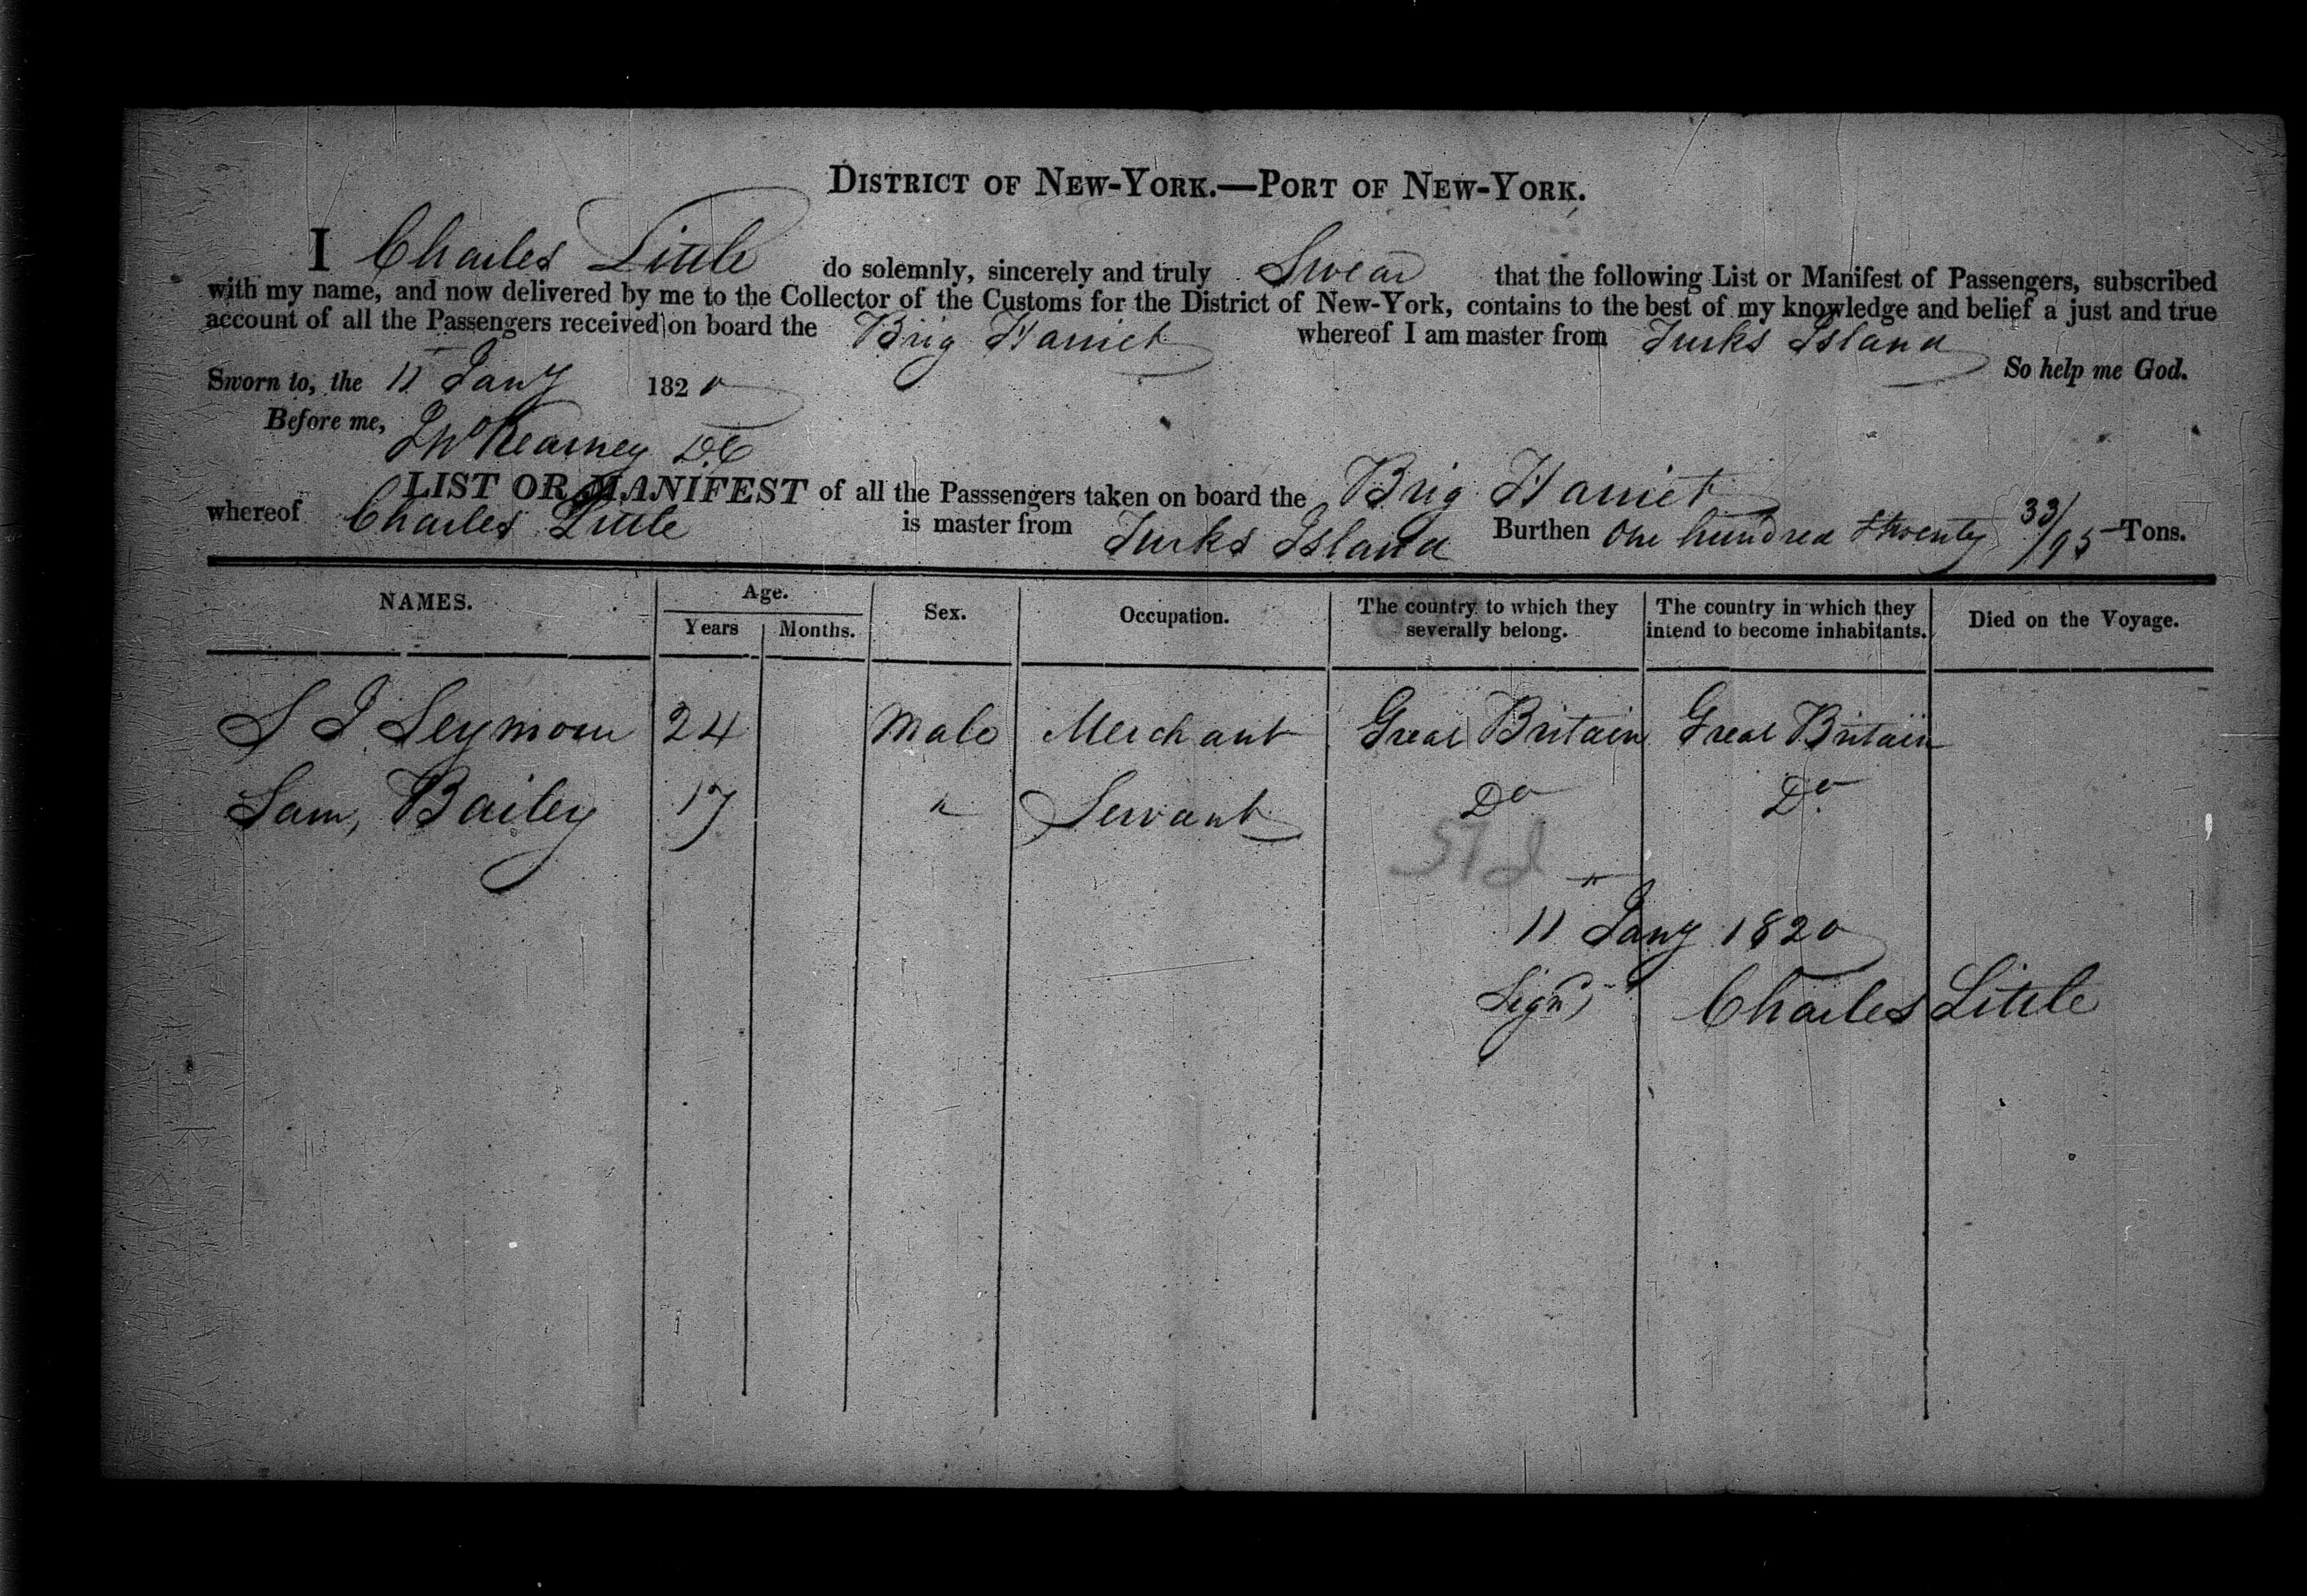 DISTRICT OF NEW-YORK.—PORT OF NEW-YORK.
I Charles Little do solemnly, sincerely and truly Swear that the following List or Manifest of Passengers, subscribed
with my name, and now delivered by me to the Collector of the Customs for the District of New-York, contains to the best of my knowledge and belief a just and true
account of all the Passengers received on board the Brig Harriet whereof I am master from Turks Island
So help me God.
Sworn to, the 11 Jany 1820
Before me, Jno Kearney DC
LIST OR MANIFEST of all the Passsengers taken on board the Brig Harriet
whereof Charles Little is master from Turks Island Burthen One hundred twenty 33/95 Tons.
NAMES. Age. Years Months. Sex. Occupation. The country to which they severally belong. The country in which they intend to become inhabitants. Died on the Voyage.
S J Seymour 24 Male Merchant Great Britain Great Britain
Sam, Bailey 17 " Servant Do Do
11 Jany 1820
Signd Charles Little